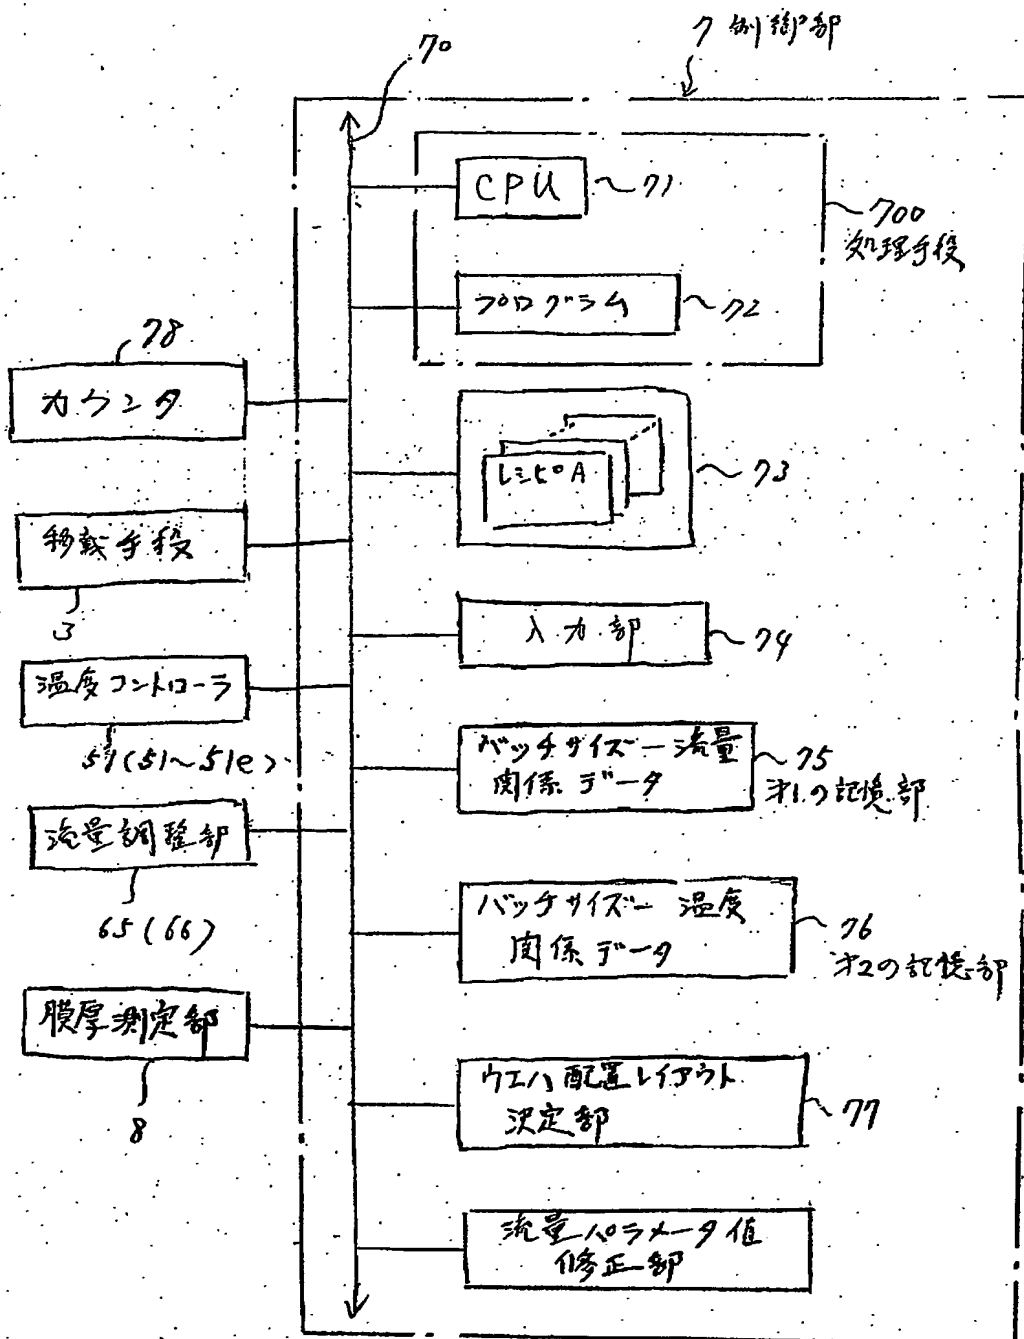 7 制御部
70
CPU
71
700
処理手段
プログラム
72
78
カウンタ
レシピA
73
移載手段
3
入力部
74
温度コントローラ
51(51~51e)
バッチサイズー流量
関係データ
75
才1の記憶部
流量調整部
65(66)
バッチサイズー温度
関係データ
76
才2の記憶部
膜厚測定部
8
ウエハ配置レイアウト
決定部
77
流量パラメータ値
修正部